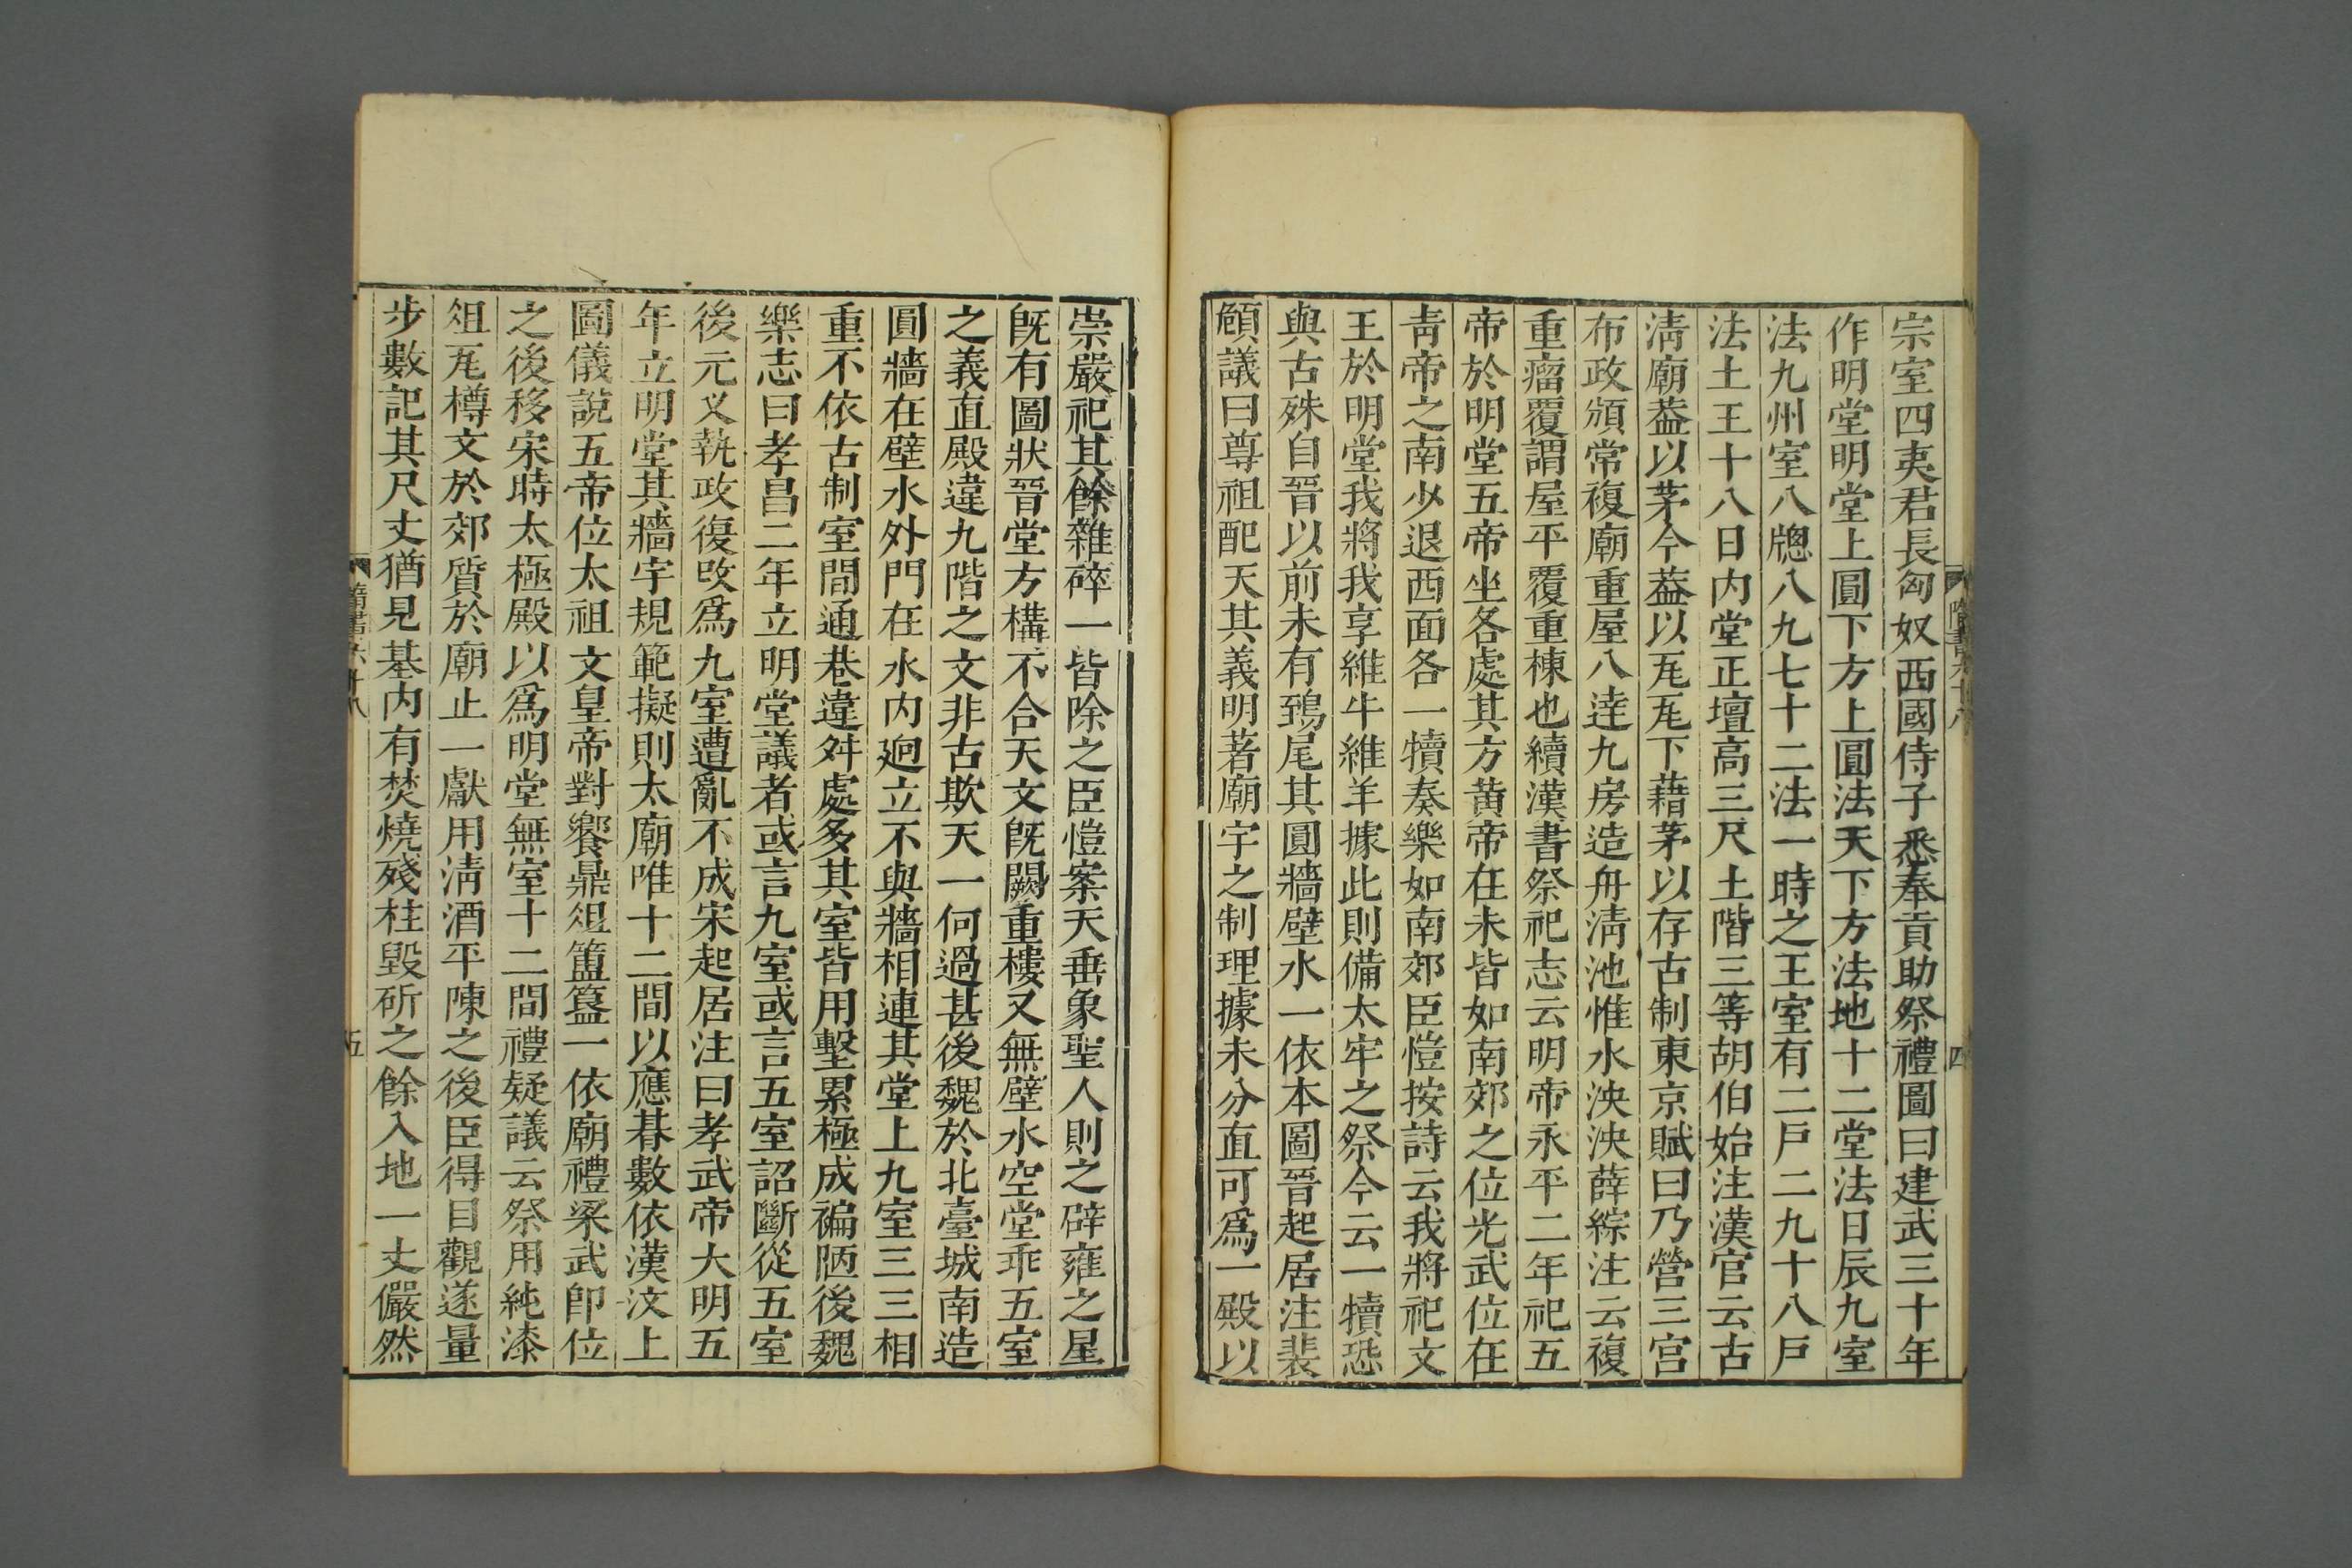 宗室四夷君長匈奴西國侍子悉奉貢助祭禮圖曰建武三十年
作明堂明堂上圓下方上圓法天下方法地十二堂法日辰九室
法九州室八牕八九七十二法一時之王室有二戶二九十八戶
法土王十八日内堂正壇高三尺土階三等胡伯始注漢官云古
清廟葢以茅今葢以瓦瓦下藉茅以存古制東京賦曰乃營三宫
布政頒常複廟重屋八達九房造舟清池惟水泱泱薛綜注云複
重廇覆謂屋平覆重棟也續漢書祭祀志云明帝永平二年祀五
帝於明堂五帝坐各處其方黄帝在未皆如南郊之位光武位在
青帝之南少退西面各一犢奏樂如南郊臣愷按詩云我將祀文
王於明堂我將我享維牛維羊據此則備太牢之祭今云一犢恐
與古殊自晉以前未有鵄尾其圓牆壁水一依本圖晉起居注裴
頠議曰尊祖配天其義明著廟宇之制理據未分直可爲一殿以
崇嚴祀其餘雜碎一皆除之臣愷案天垂象聖人則之辟雍之星
既有圖狀晉堂方構不合天文既闕重樓又無壁水空堂乖五室
之義直殿違九階之文非古欺天一何過甚後魏於北臺城南造
圓牆在壁水外門在水内迥立不與牆相連其堂上九室三三相
重不依古制室間通巷違舛處多其室皆用墼累極成褊陋後魏
樂志曰孝昌二年立明堂議者或言九室或言五室詔斷從五室
後元乂執政復改爲九室遭亂不成宋起居注曰孝武帝大明五
年立明堂其牆宇規範擬則太廟唯十二間以應朞數依漢汶上
圖儀説五帝位太祖文皇帝對饗鼎俎簠簋一依廟禮梁武即位
之後移宋時太極殿以爲明堂無室十二間禮疑議云祭用純漆
俎瓦樽文於郊質於廟止一獻用清酒平陳之後臣得目觀遂量
步數記其尺丈猶見基内有焚燒殘柱毀斫之餘入地一丈儼然
隋書六十八
五